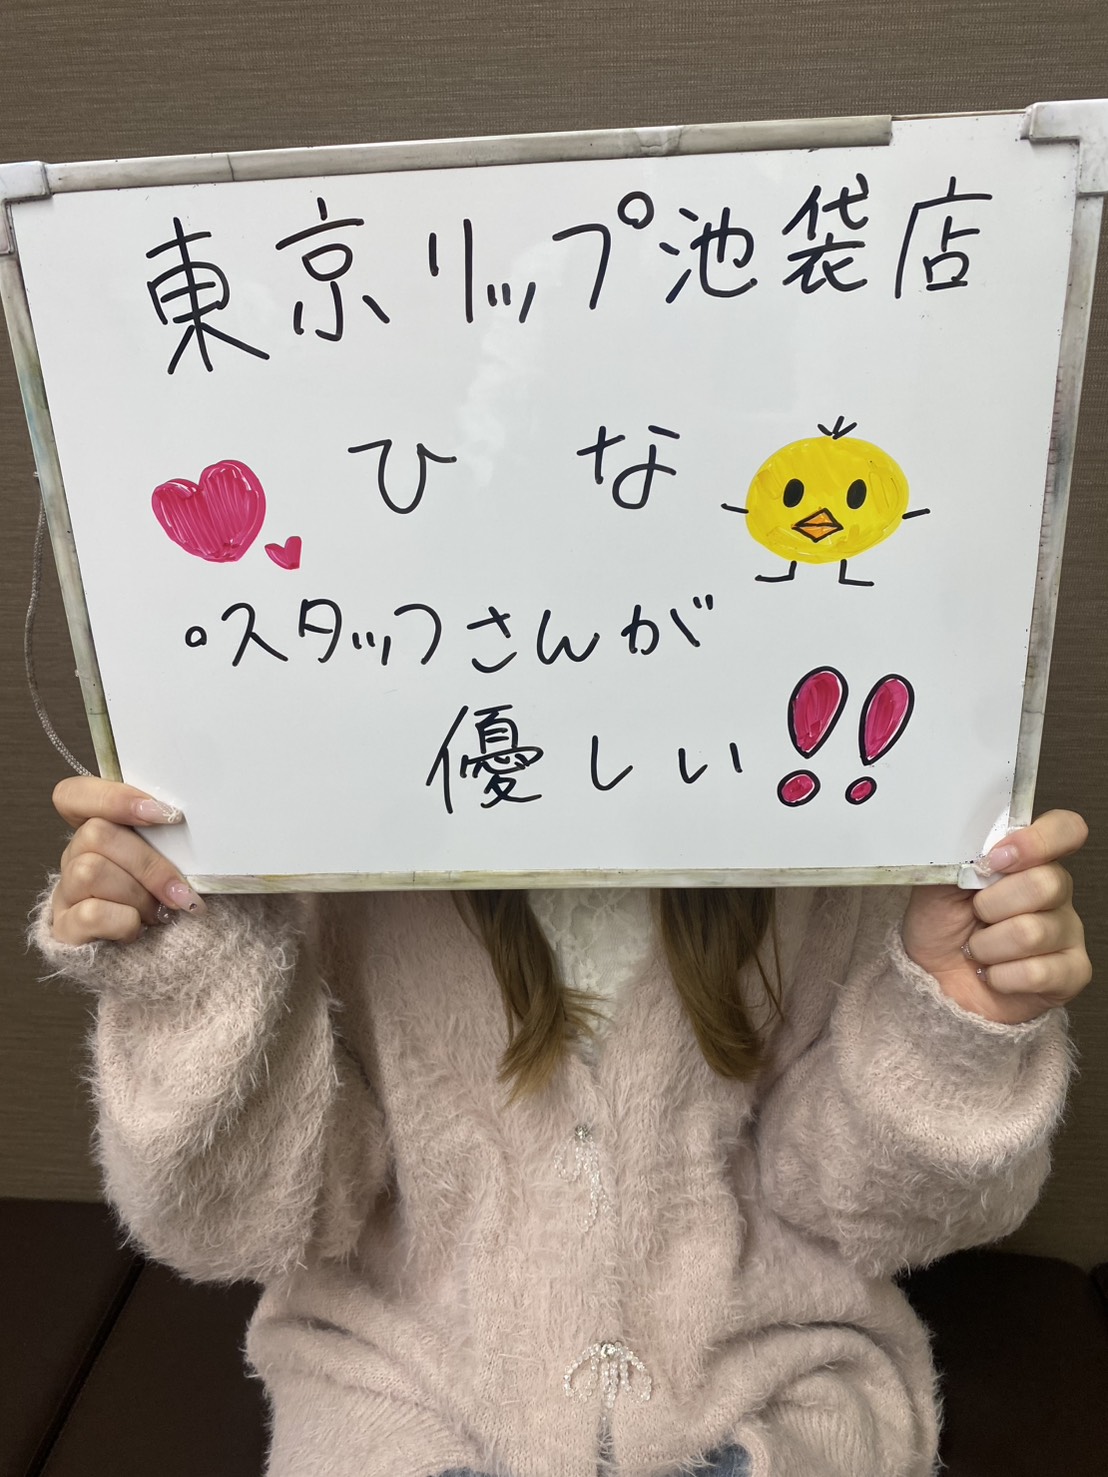 東京リップ池袋店
ひな
・スタッフさんが
優しい!!